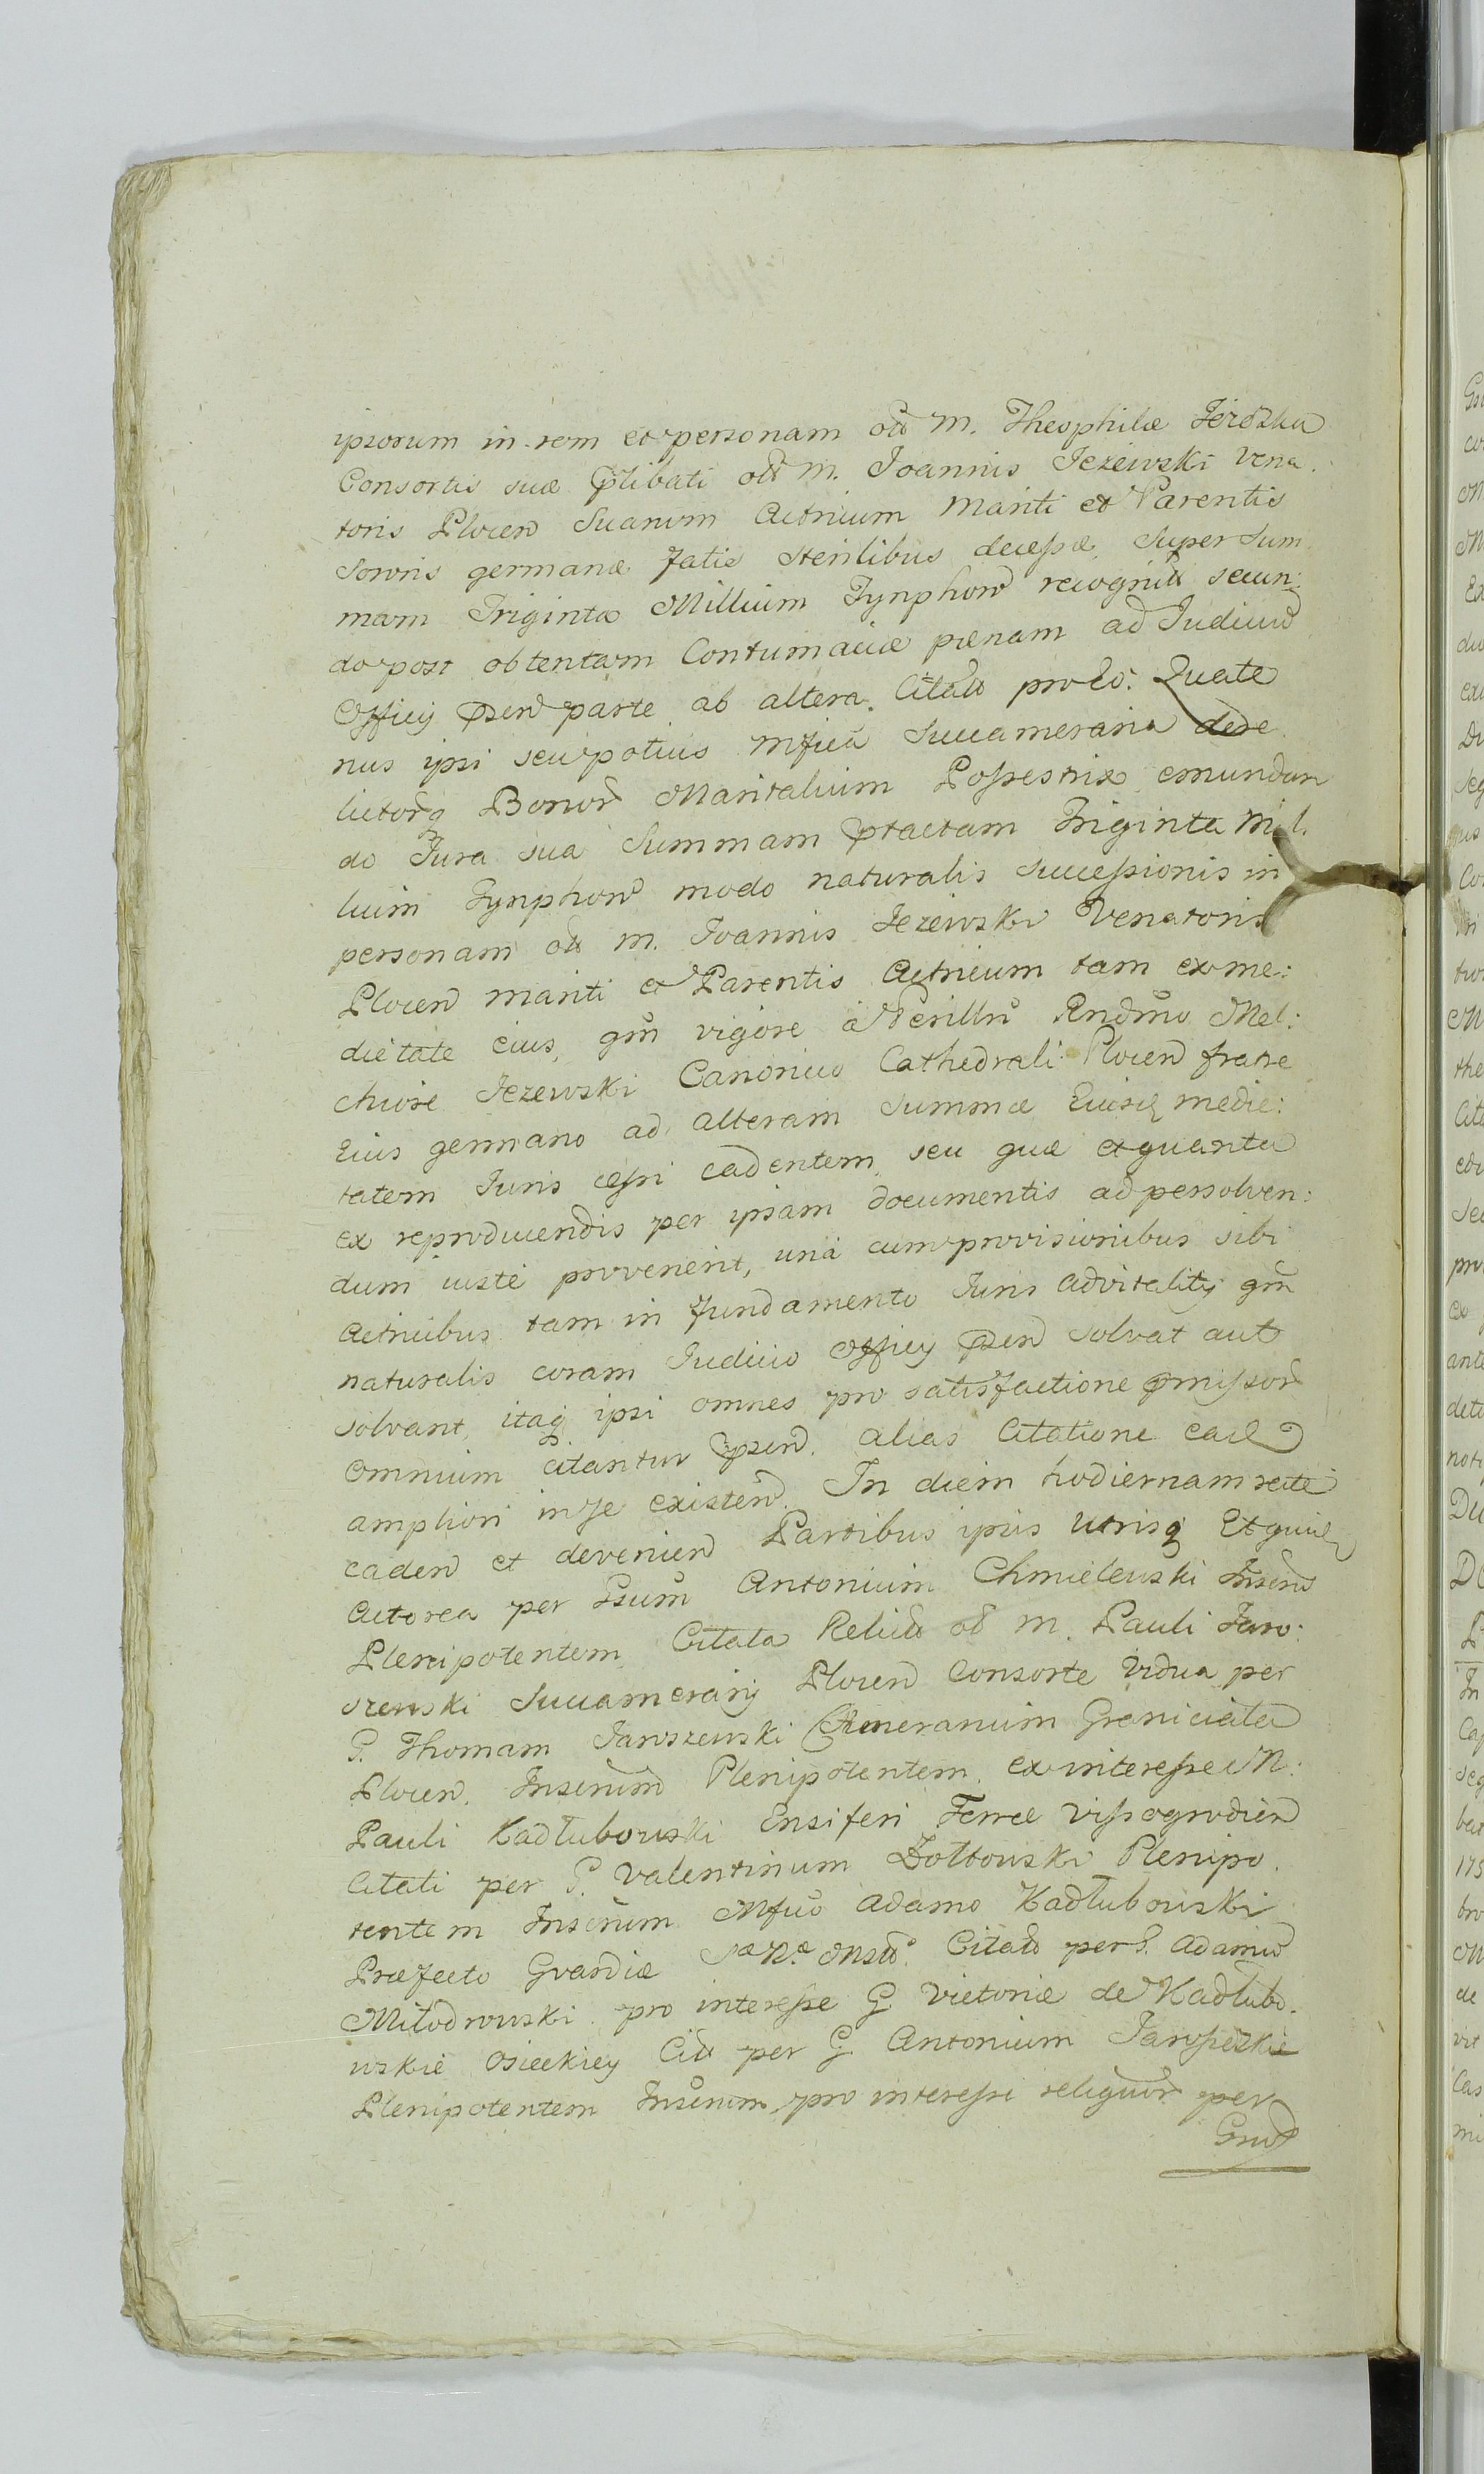 ipsorum in rem et personam olt M. Theophilæ Jerozka
Consortis suæ Plibati olt M. Joannis Jezewski Vena.
toris Plocen Suarum Actricum Mariti et Parentis
Sororis germanæ fatis sterilibus decessæ, Super Sum
mam Triginta Millium Tynphow recognitt secun:
do post obtentam Contumaciæ pænam ad Judiciu
Officij Psen parte ab altera. Citatt proto. Quate
nus ipsi seu potius Mfica Succameraria dere
lictorq Bonor Maritalium Possestrix emundan
do Jura sua Summam Ptactam Triginta Mil.
lium Tynphow modo naturalis successionis in
personam olt M. Joannis Jezewski Venatoris
Plocen mariti et Parentis Actricum tam ex me:
dietate eius, qm vigore à Perillri Rndmo Mel:
chiore Jezewski Canonico Cathedrali Plocen fratre
Eius germano ad alteram Summæ Eiusq medie:
tatem Juris cessi cadentem, seu quæ et quanta
ex reproducendis per ipsam documentis ad persolven:
dum iustè provenerit, unà cum provisionibus sibi
Actricibus tam in fundamento Juris advitalitij qm
naturalis coram Judicio Officij Psen solvat aut
solvant, itaq ipsi omnes pro satisfactione Pmissor
omnium citantur Psen. alias Citatione ead
ampliori in se existen. In diem hodiernam recte
caden et devenien Partibus ipsis utrisq Et quid
Actorea per Gsum Antonium Chmielewski Inserus
Plenipotentem Citata Relicta olt M. Pauli Jaro:
szewski Succamerarij Plocen Consorte Vidua per
G. Thomam Jaroszewski Cameranium Graniciata
Plocen. Inserium Plenipotentem. ex interesse M:
Pauli Kadłubowski Ensiferi Terræ Vissogrodien
Citati per G. Valentinum Zołtowski Plenipo.
tentem Inserium Mfico Adamo Kadłubowski
Præfecto Gvardiæ Citatt per G. Adamu
Miłodrowski pro interesse G. Victoriæ de Kadłubo.
wskie Osieckiey Citt per G. Antonium Jarosseski
Plenipotentem Inserium pro interesse reliquor per
Gnu